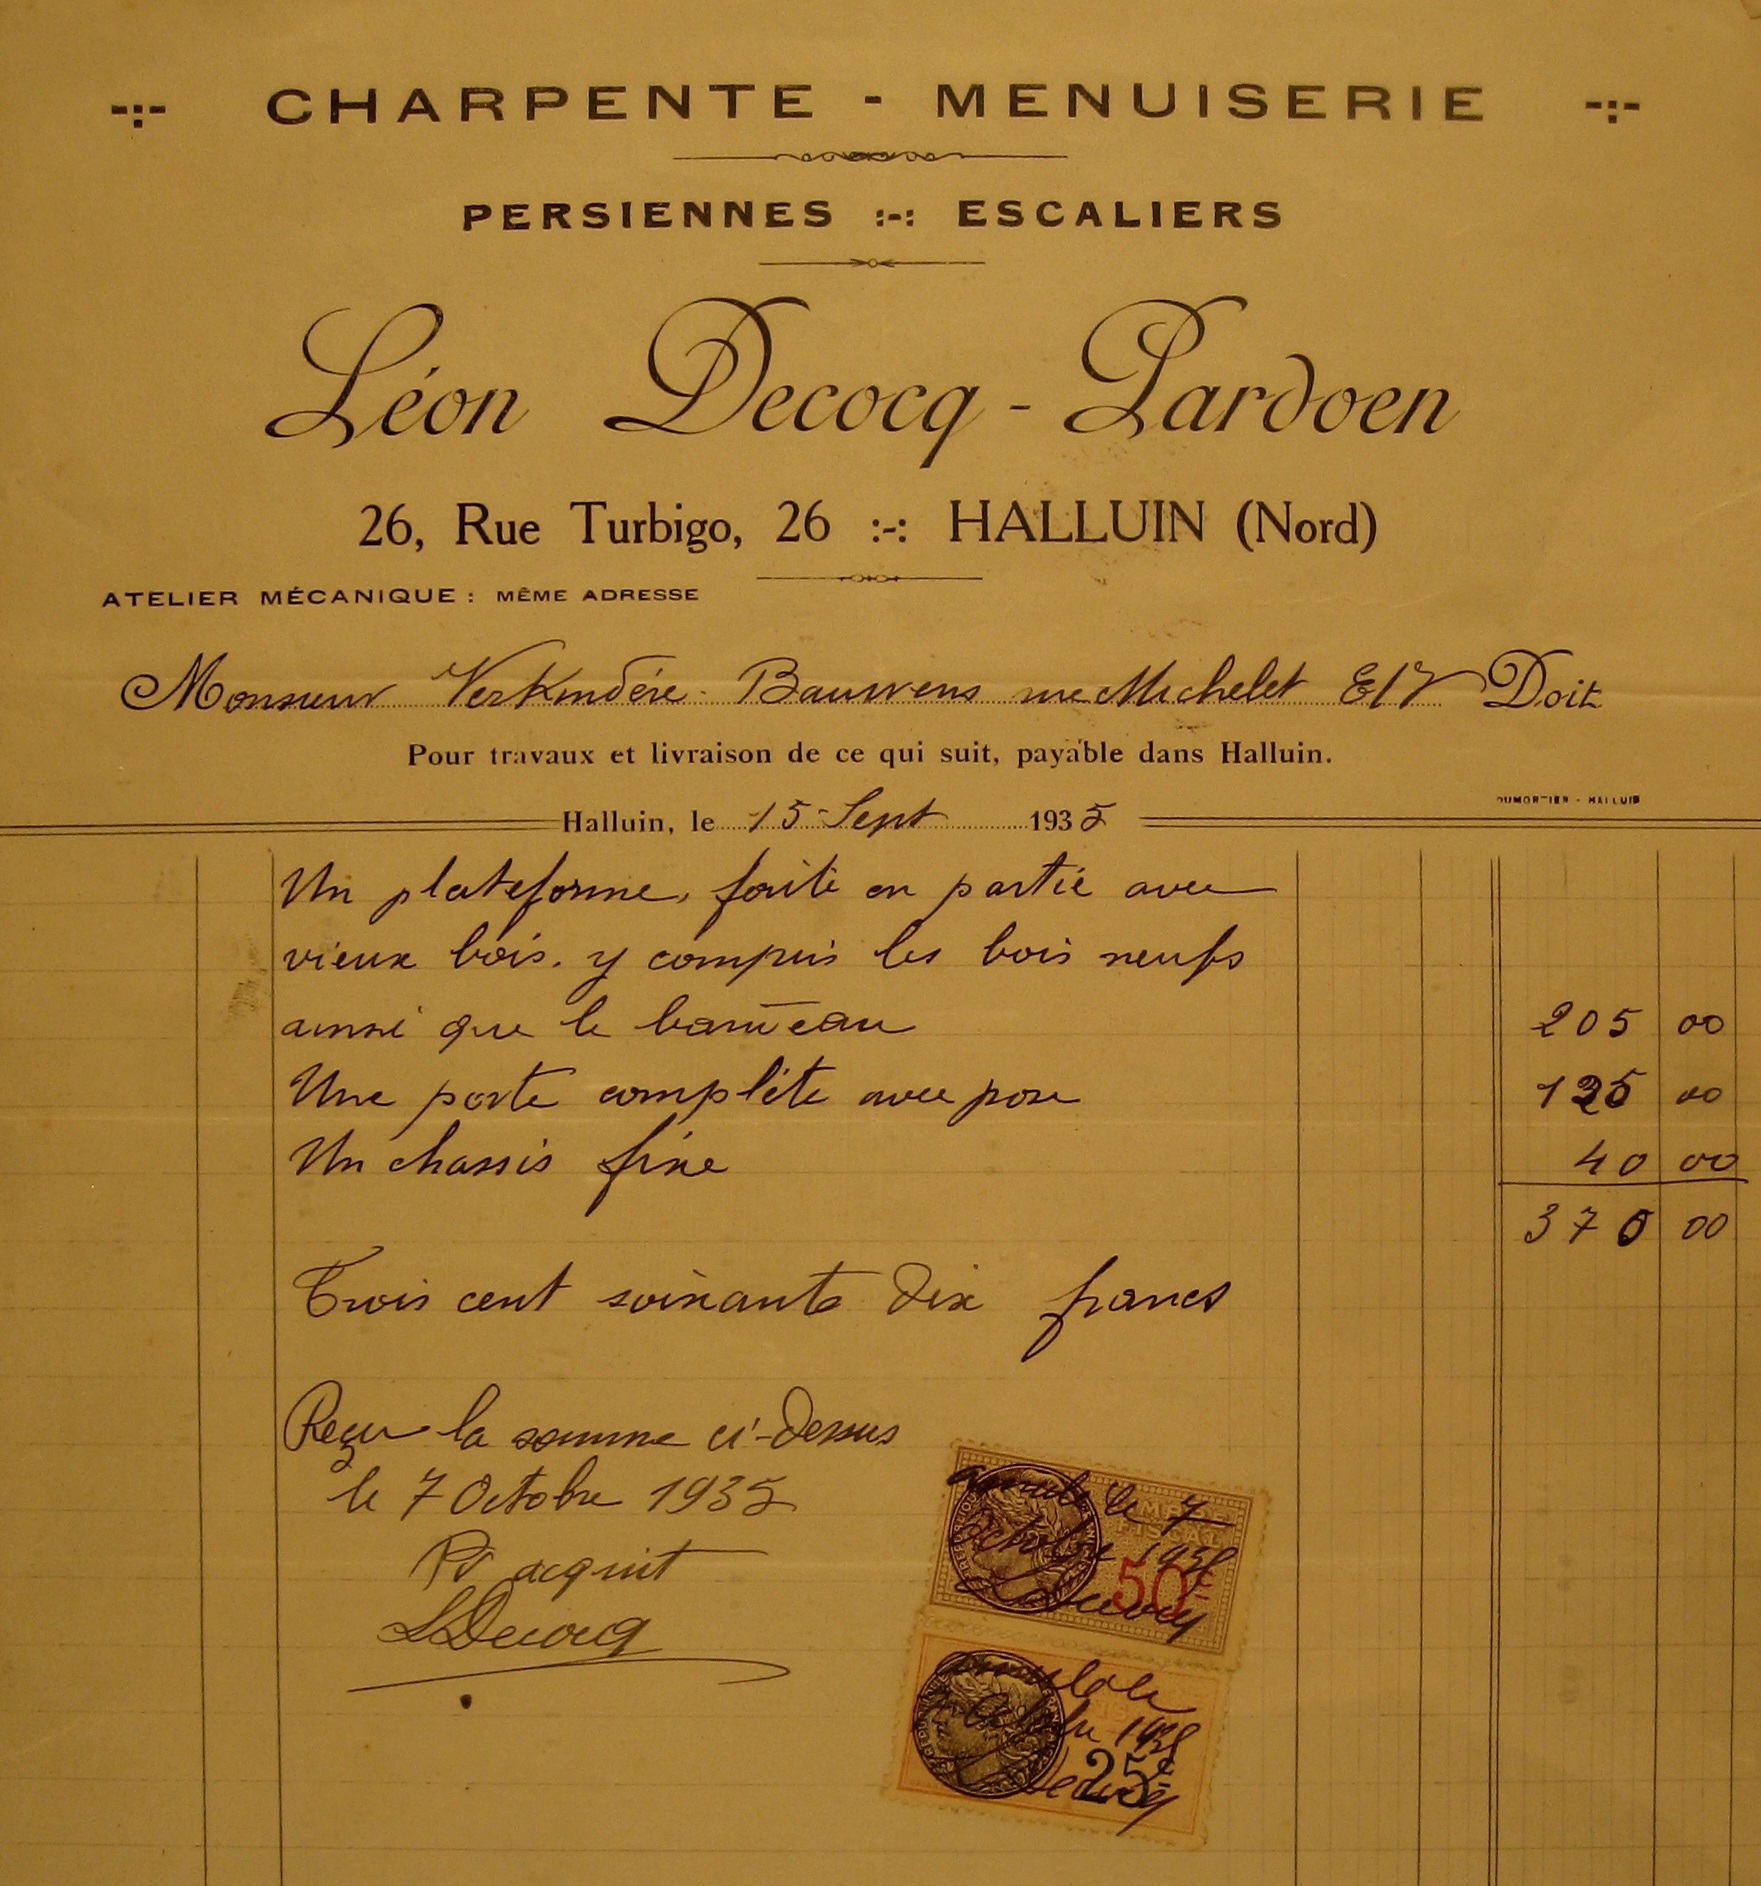 -:- CHARPENTE - MENUISERIE -:-
PERSIENNES :-: ESCALIERS
Léon Decocq - Pardoen
26, Rue Turbigo, 26 :-: HALLUIN (Nord)
ATELIER MÉCANIQUE : MÊME ADRESSE
Monsieur Verkindère - Bauwens rue Michelet E/V Doit
Pour travaux et livraison de ce qui suit, payable dans Halluin.
DUMORTIER - HALLUIN
Halluin, le 15 Sept 1935
Un plateforme, faite en partie avec
vieux bois. y compris les bois neufs
ainsi que le 205 00
Une porte complète avec pose 125 00
Un chassis fixe 40 00
370 00
Trois cent soixante dix francs
Reçu la somme ci-dessus
le 7 Octobre 1935
Pr acquit
LDecocq
FISCAL
50c
le 7
Octobre 1935
LDecocq
25c
1935